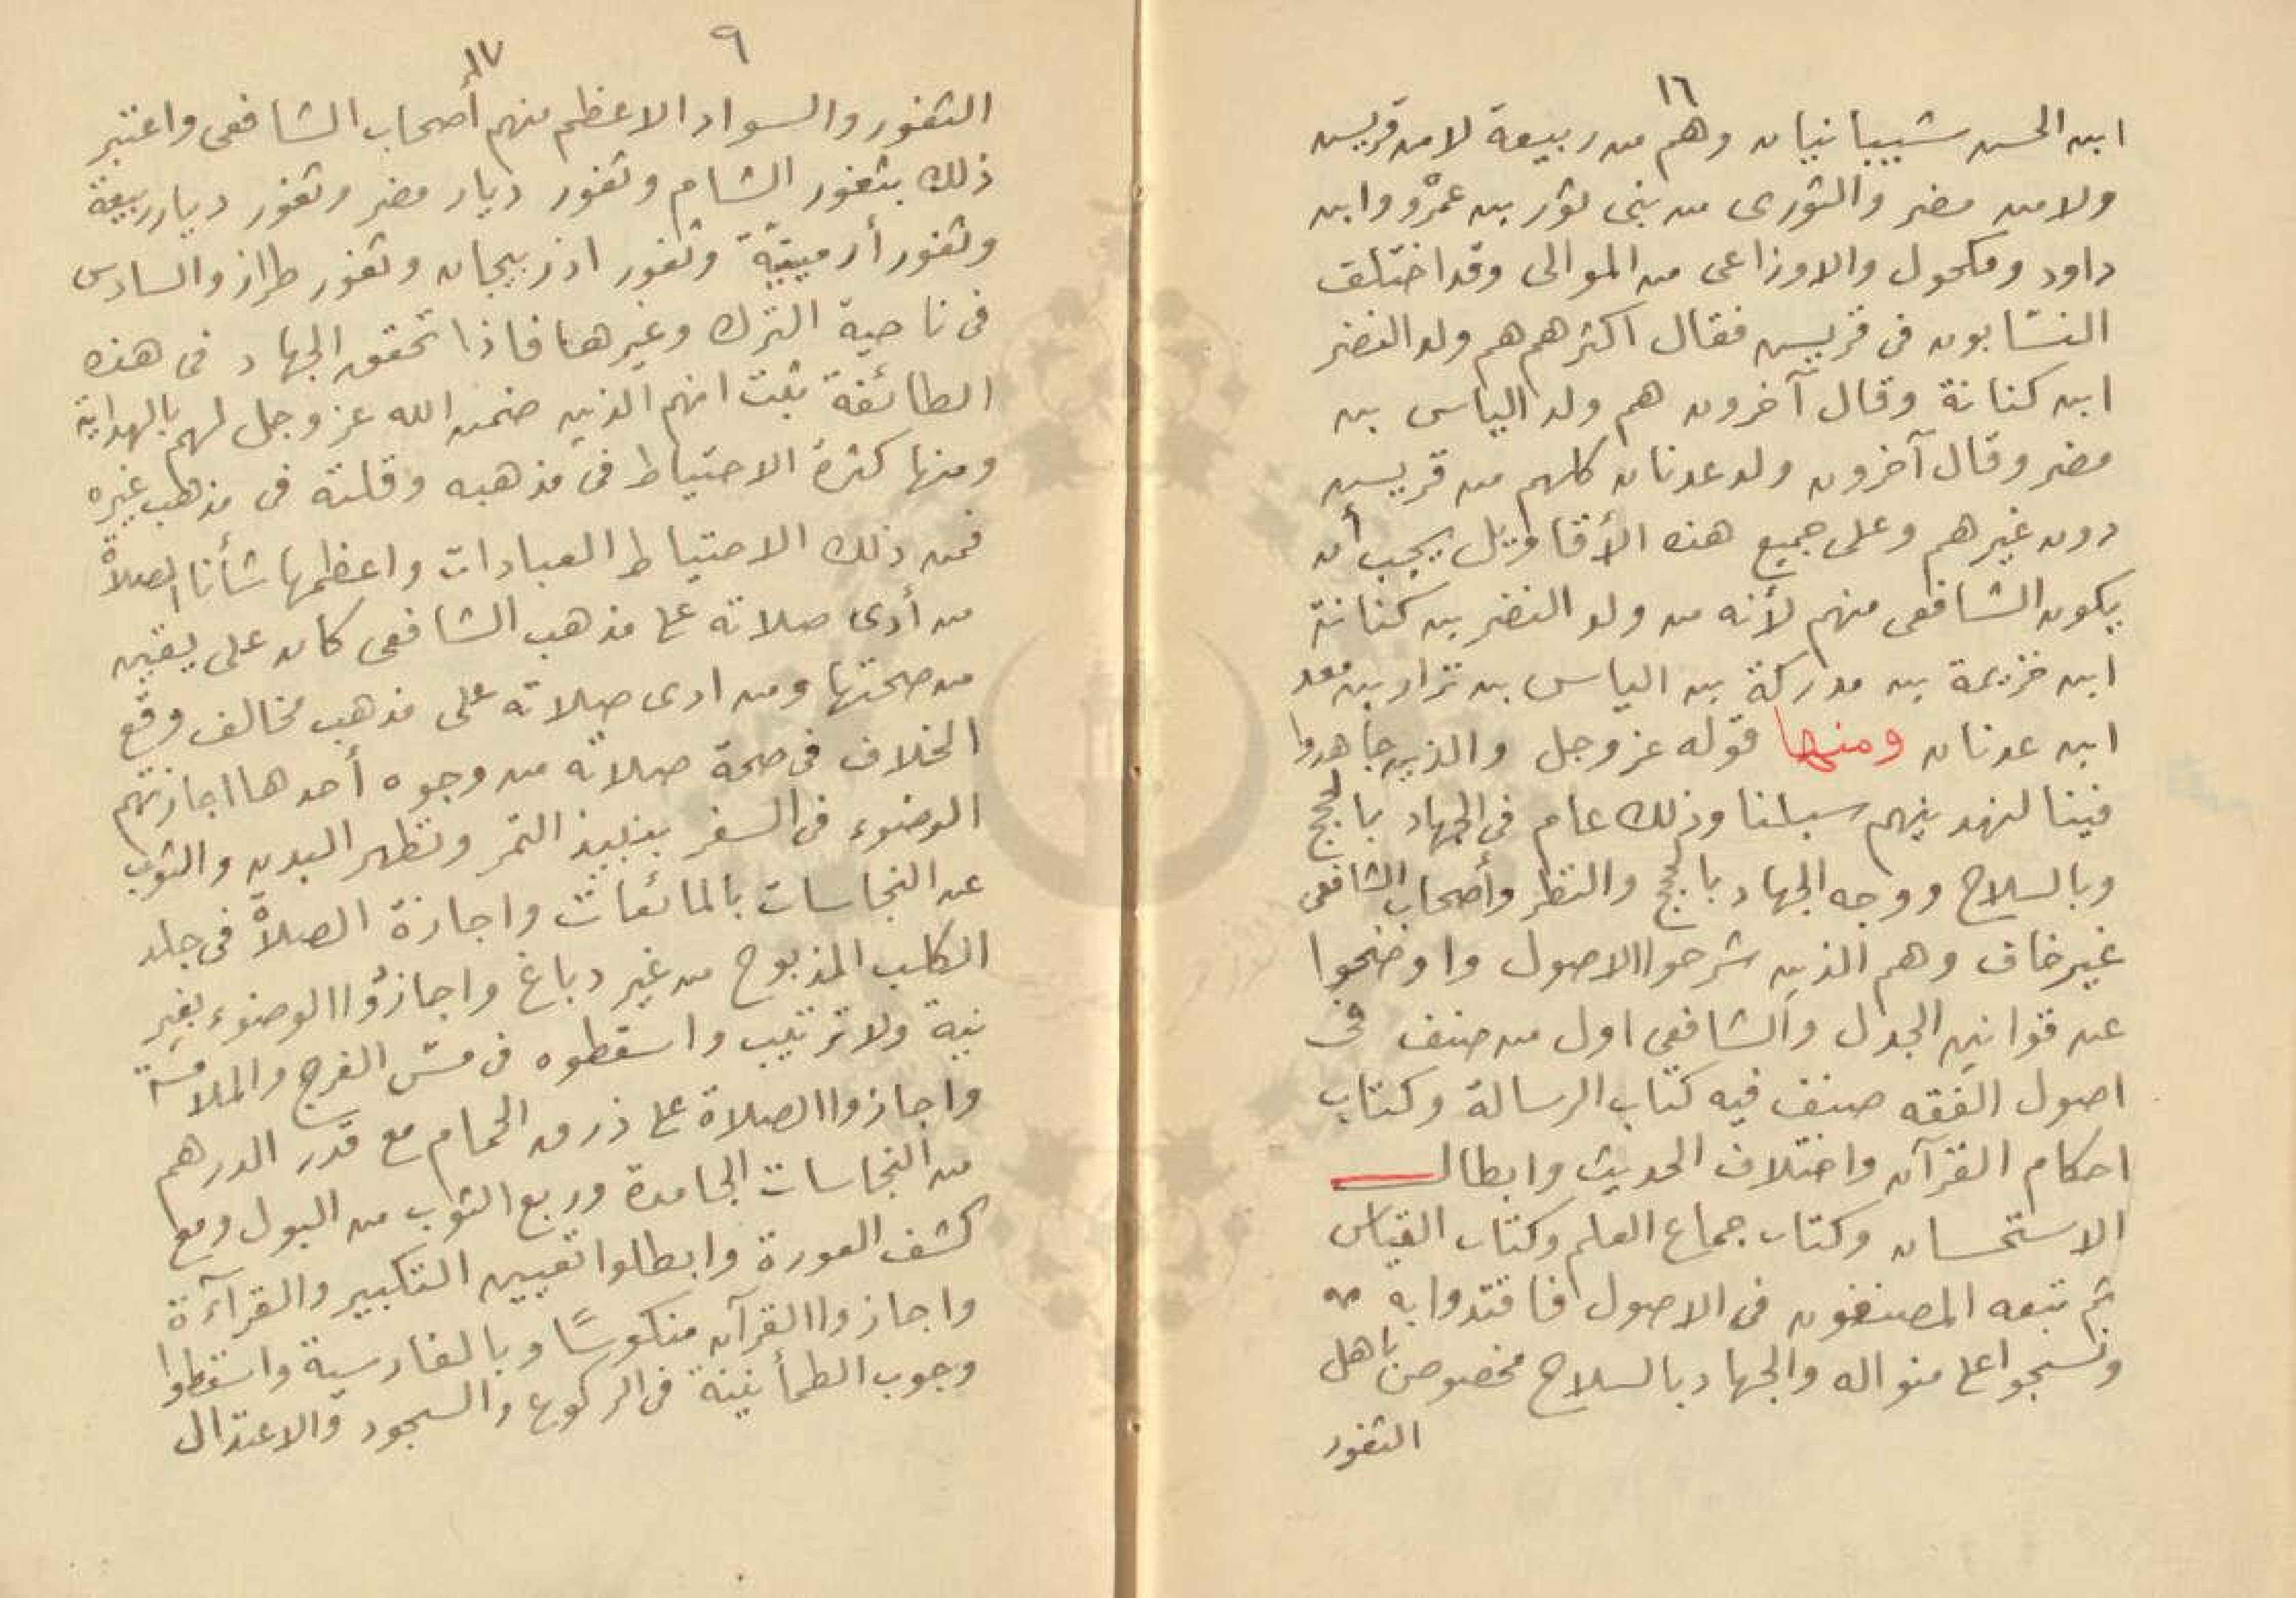 ١٦
ابن الحسن شيبانيان وهم من ربيعة لا من قريش
ولا من مضر والثورى من بنى ثور بن عمْرو وابن
داود ومكحول والاوزاعى من الموالى وقد اختلف
النسّابون فى قريش فقال اكثرهم هم ولد النضر
ابن كنانة وقال آخرون هم ولد الياس بن
مضر وقال آخرون ولد عدنان كلهم من قريش
دون غيرهم وعلى جميع هذه الأقاويل يجب أن
يكون الشافعى منهم لأنه من ولد النضر بن كنانة
ابن خزيمة بن مدركة بن الياس بن نزار بن معد
ابن عدنان ومنها قوله عز وجل والذين جاهدوا
فينا لنهدينهم سبلنا وذلك عام فى الجهاد بالحجج
وبالسلاح ووجه الجهاد بالحجج والنظر وأصحاب الشافعى
غير خاف وهم الذين شرحوا الاصول واوضحوا
عن قوانين الجدل والشافعى اول من صنف فى
اصول الفقه صنف فيه كتاب الرسالة وكتاب
احكام القرآن واختلاف الحديث وابطال
الاستحسان وكتاب جماع العلم وكتاب القياس
ثم تبعه المصنفون فى الاصول فاقتدوا به
ونسجوا على منواله والجهاد بالسلاح مخصوص باهل
الثغور
٩
١٧
الثغور والسواد الاعظم منهم أصحاب الشافعى واعتبر
ذلك بثغور الشام وثغور ديار مضر وثغور ديار ربيعة
وثغور أرمينيّة وثغور اذربيجان وثغور طراز والسادس
فى ناحية الترك وغيرها فاذا تحقق الجهاد فى هذه
الطائفة ثبت انهم الذين ضمن الله عز وجل لهم بالهداية
ومنها كثرة الاحتياط فى مذهبه وقلته فى مذهب غيره
فمن ذلك الاحتياط العبادات واعظمها شأنا الصلاة
من أدى صلاته على مذهب الشافعى كان على يقين
من صحتها ومن ادى صلاته على مذهب مخالف وقع
الخلاف فى صحة صلاته من وجوه أحدها اجازتهم
الوضوء فى السفر بنبيذ التمر وتطهر البدن والثوب
عن النجاسات بالمائعات واجازة الصلاة فى جلد
الكلب المذبوح من غير دباغ واجازوا الوضوء بغير
نية ولا ترتيب واسقطوه فى مسّ الفرج والملامسة
واجازوا الصلاة على ذرق الحمام مع قدر الدرهم
من النجاسات الجامدة وربع الثوب من البول ومع
كشف العورة وابطلوا تعيين التكبير والقرآءة
واجازوا القرآن منكوسًا وبالفارسية واسقطوا
وجوب الطمأنينة فى الركوع والسجود والاعتدال